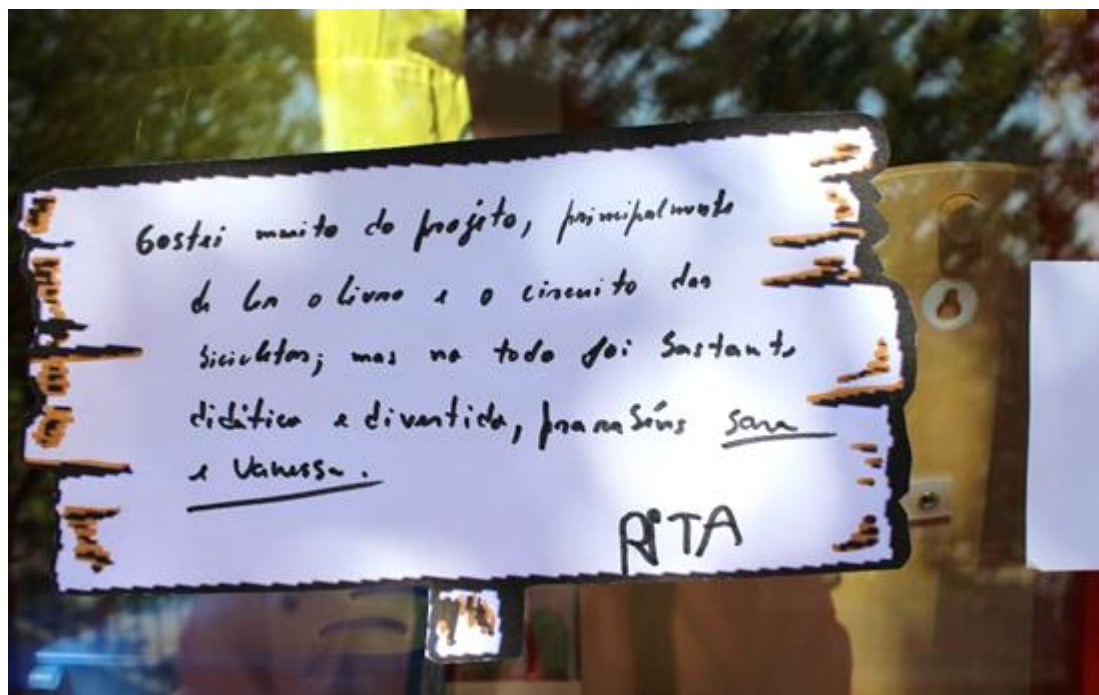 Gostei muito do projeto, principalmente
de ler o livro e o circuito das
bicicletas; mas no todo foi bastante
didática e divertida, parabéns Sara
e Vanessa.
RiTA